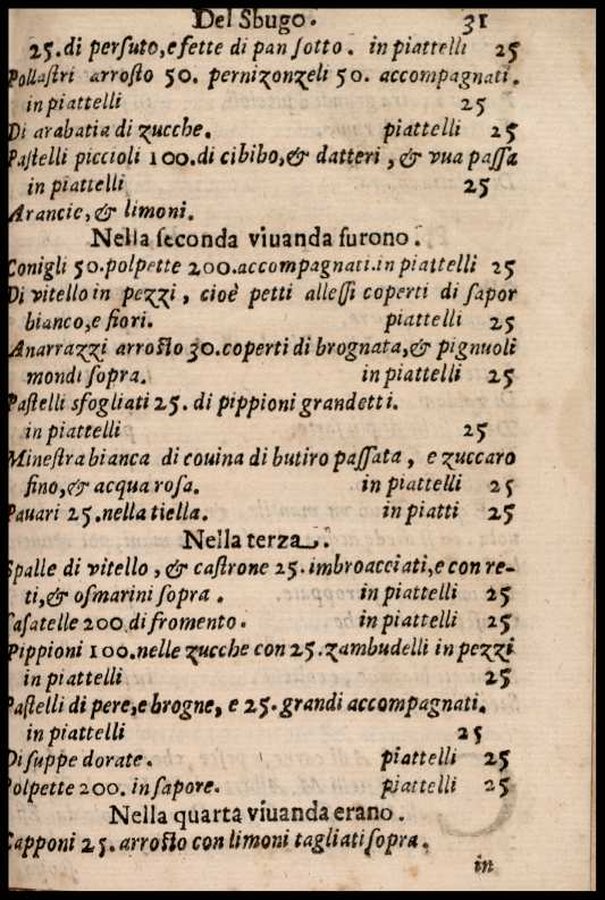 Del Sbugo. 31
25. di persuto, e fette di pan sotto. in piattelli 25
Pollastri arrosto 50. pernizonzeli 50. accompagnati.
in piattelli 25
Di arabatia di zucche. piattelli 25
Pastelli piccioli 100. di cibibo, & datteri, & vua passa
in piattelli 25
Arancie, & limoni.
Nella seconda viuanda furono.
Conigli 50. polpette 200. accompagnati. in piattelli 25
Di vitello in pezzi, cioè petti allessi coperti di sapor
bianco, e fiori. piattelli 25
Anarrazzi arrosto 30. coperti di brognata, & pignuoli
mondi sopra. in piattelli 25
Pastelli sfogliati 25. di pippioni grandetti.
in piattelli 25
Minestra bianca di couina di butiro passata, e zuccaro
fino, & acqua rosa. in piattelli 25
Pauari 25. nella tiella. in piatti 25
Nella terza.
Spalle di vitello, & castrone 25. imbroacciati, e con re-
ti, & osmarini sopra. in piattelli 25
Casatelle 200 di fromento. in piattelli 25
Pippioni 100. nelle zucche con 25. zambudelli in pezzi
in piattelli 25
Pastelli di pere, e brogne, e 25. grandi accompagnati.
in piattelli 25
Di suppe dorate. piattelli 25
Polpette 200. in sapore. piattelli 25
Nella quarta viuanda erano.
Capponi 25. arrosto con limoni tagliati sopra.
in